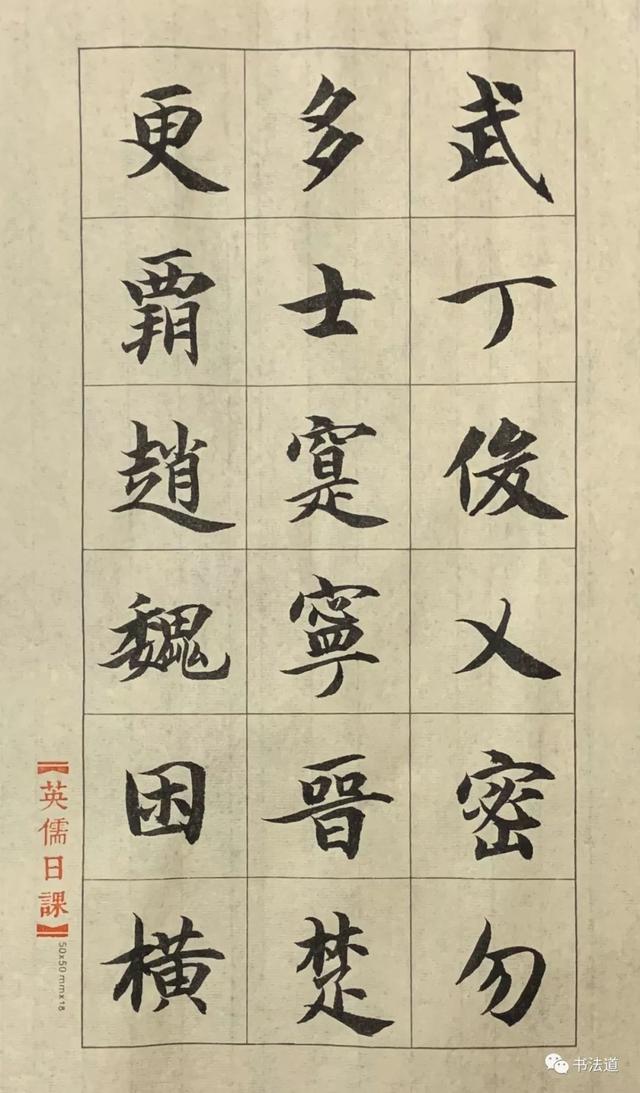 武丁俊乂密勿
多士寔寧晉楚
更霸趙魏困橫
【英儒日課】
50x50mmx18
书法道